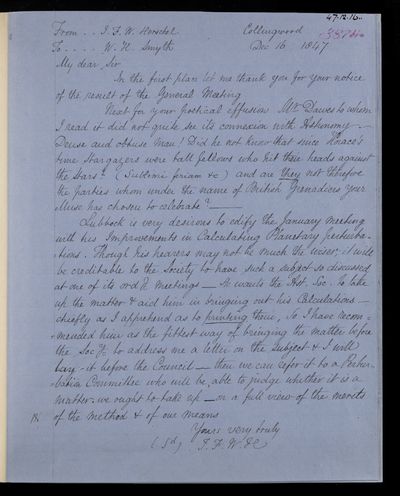 47.12.16
From . . J. F. W. Herschel Collingwood
To . . . . W. H. Smyth Dec 16 1847
My dear Sir
In the first place let me thank you for your notice
of the result of the General Meeting
Next for your poetical effusion Mr. Dawes to whom
I read it did not quite see its connexion with Astronomy. —
Dense and obtuse Man! Did he not know that since Horace's
time Stargazers were tall fellows who hit their heads against
the Stars? (Sublimi feriam &c) and are they not therefore
the parties whom under the name of British Grenadiers your
Muse has chosen to celebrate? —
Lubbock is very desirous to edify the January meeting
with his Improvements in Calculating Planetary perturba-
-tions. Though his hearers may not be much the wiser, it will
be creditable to the Society to have such a subject so discussed
at one of its ordy. Meetings — He wants the Ast. Soc. to take
up the matter & aid him in bringing out his Calculations —
chiefly as I apprehend as to printing them, So I have recom-
-mended him as the fittest way of bringing the matter before
the Socy. to address me a letter on the subject & I will
lay it before the Council — then we can refer it to a Pertur-
-bation Committee who will be able to judge whether it is a
matter we ought to take up — on a full view of the merits
of the method & of our means
Yours very truly
(Sd) J. F. W. H